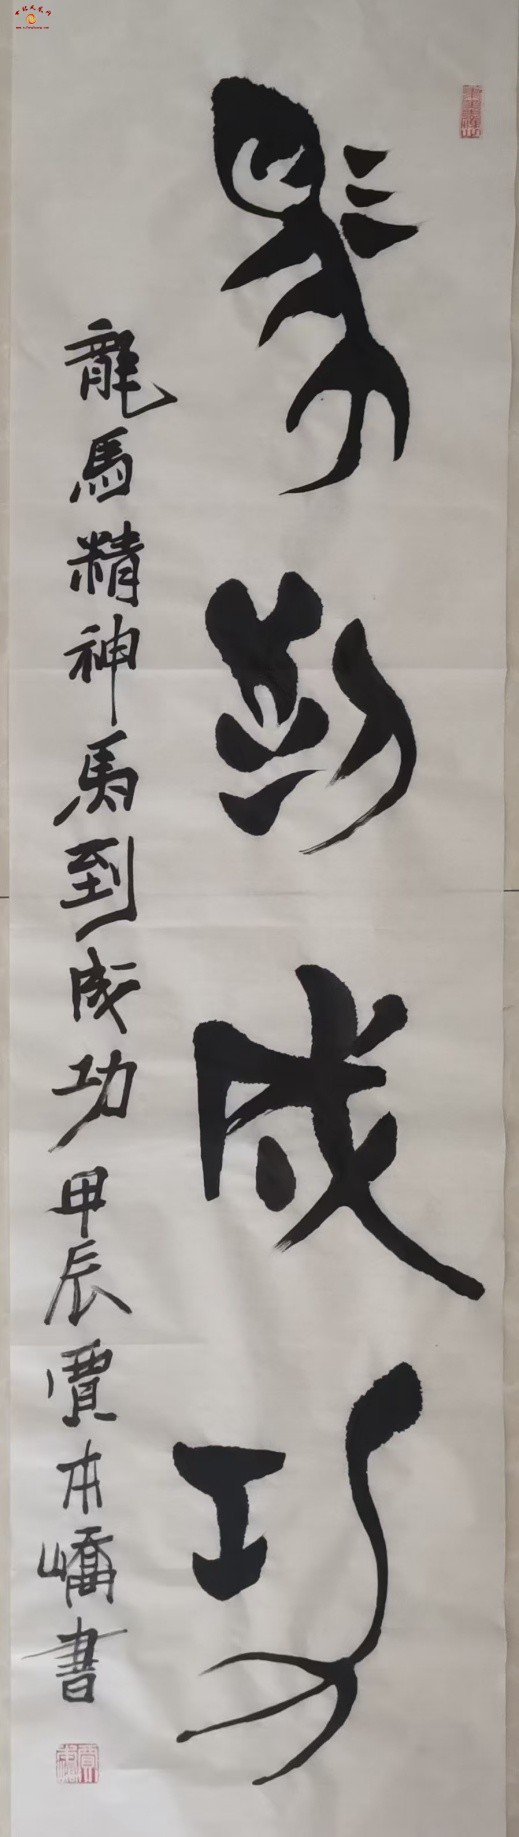 馬到成功
龍馬精神馬到成功甲辰賈本嶠書